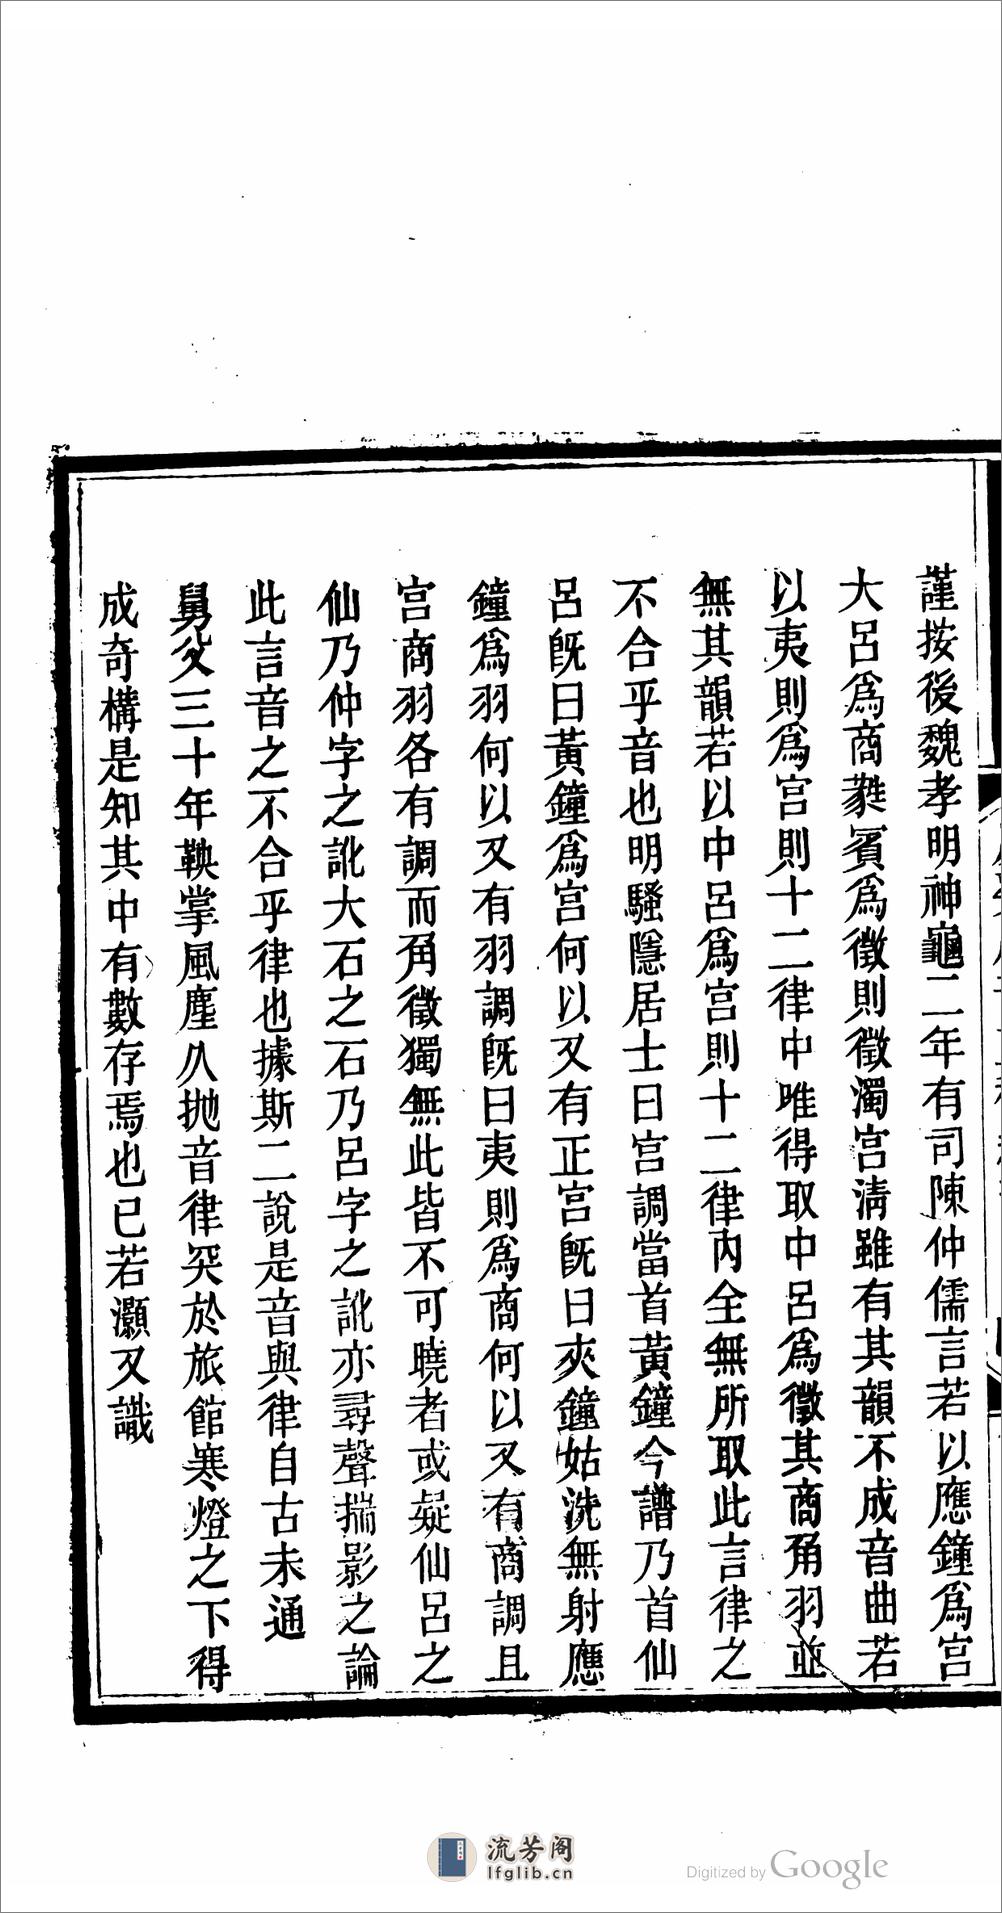 謹按後魏孝明神龜二年有司陳仲儒言若以應鐘爲宮
大呂爲商蕤賓爲徵則徵濁宮淸雖有其韻不成音曲若
以夷則爲宮則十二律中唯得取中呂爲徵其商角羽並
無其韻若以中呂爲宮則十二律內全無所取此言律之
不合乎音也明騷隱居士曰宮調當首黃鐘今譜乃首仙
呂旣曰黃鐘爲宮何以又有正宮旣曰夾鐘姑洗無射應
鐘爲羽何以又有羽調旣曰夷則爲商何以又有商調且
宮商羽各有調而角徵獨無此皆不可曉者或疑仙呂之
仙乃仲字之訛大石之石乃呂字之訛亦尋聲揣影之論
此言音之不合乎律也據斯二說是音與律自古未通
舅父三十年鞅掌風塵久抛音律突於旅館寒燈之下得
成奇構是知其中有數存焉也已若灝又識
流芳阁
lfglib.cn
Digitized by Google